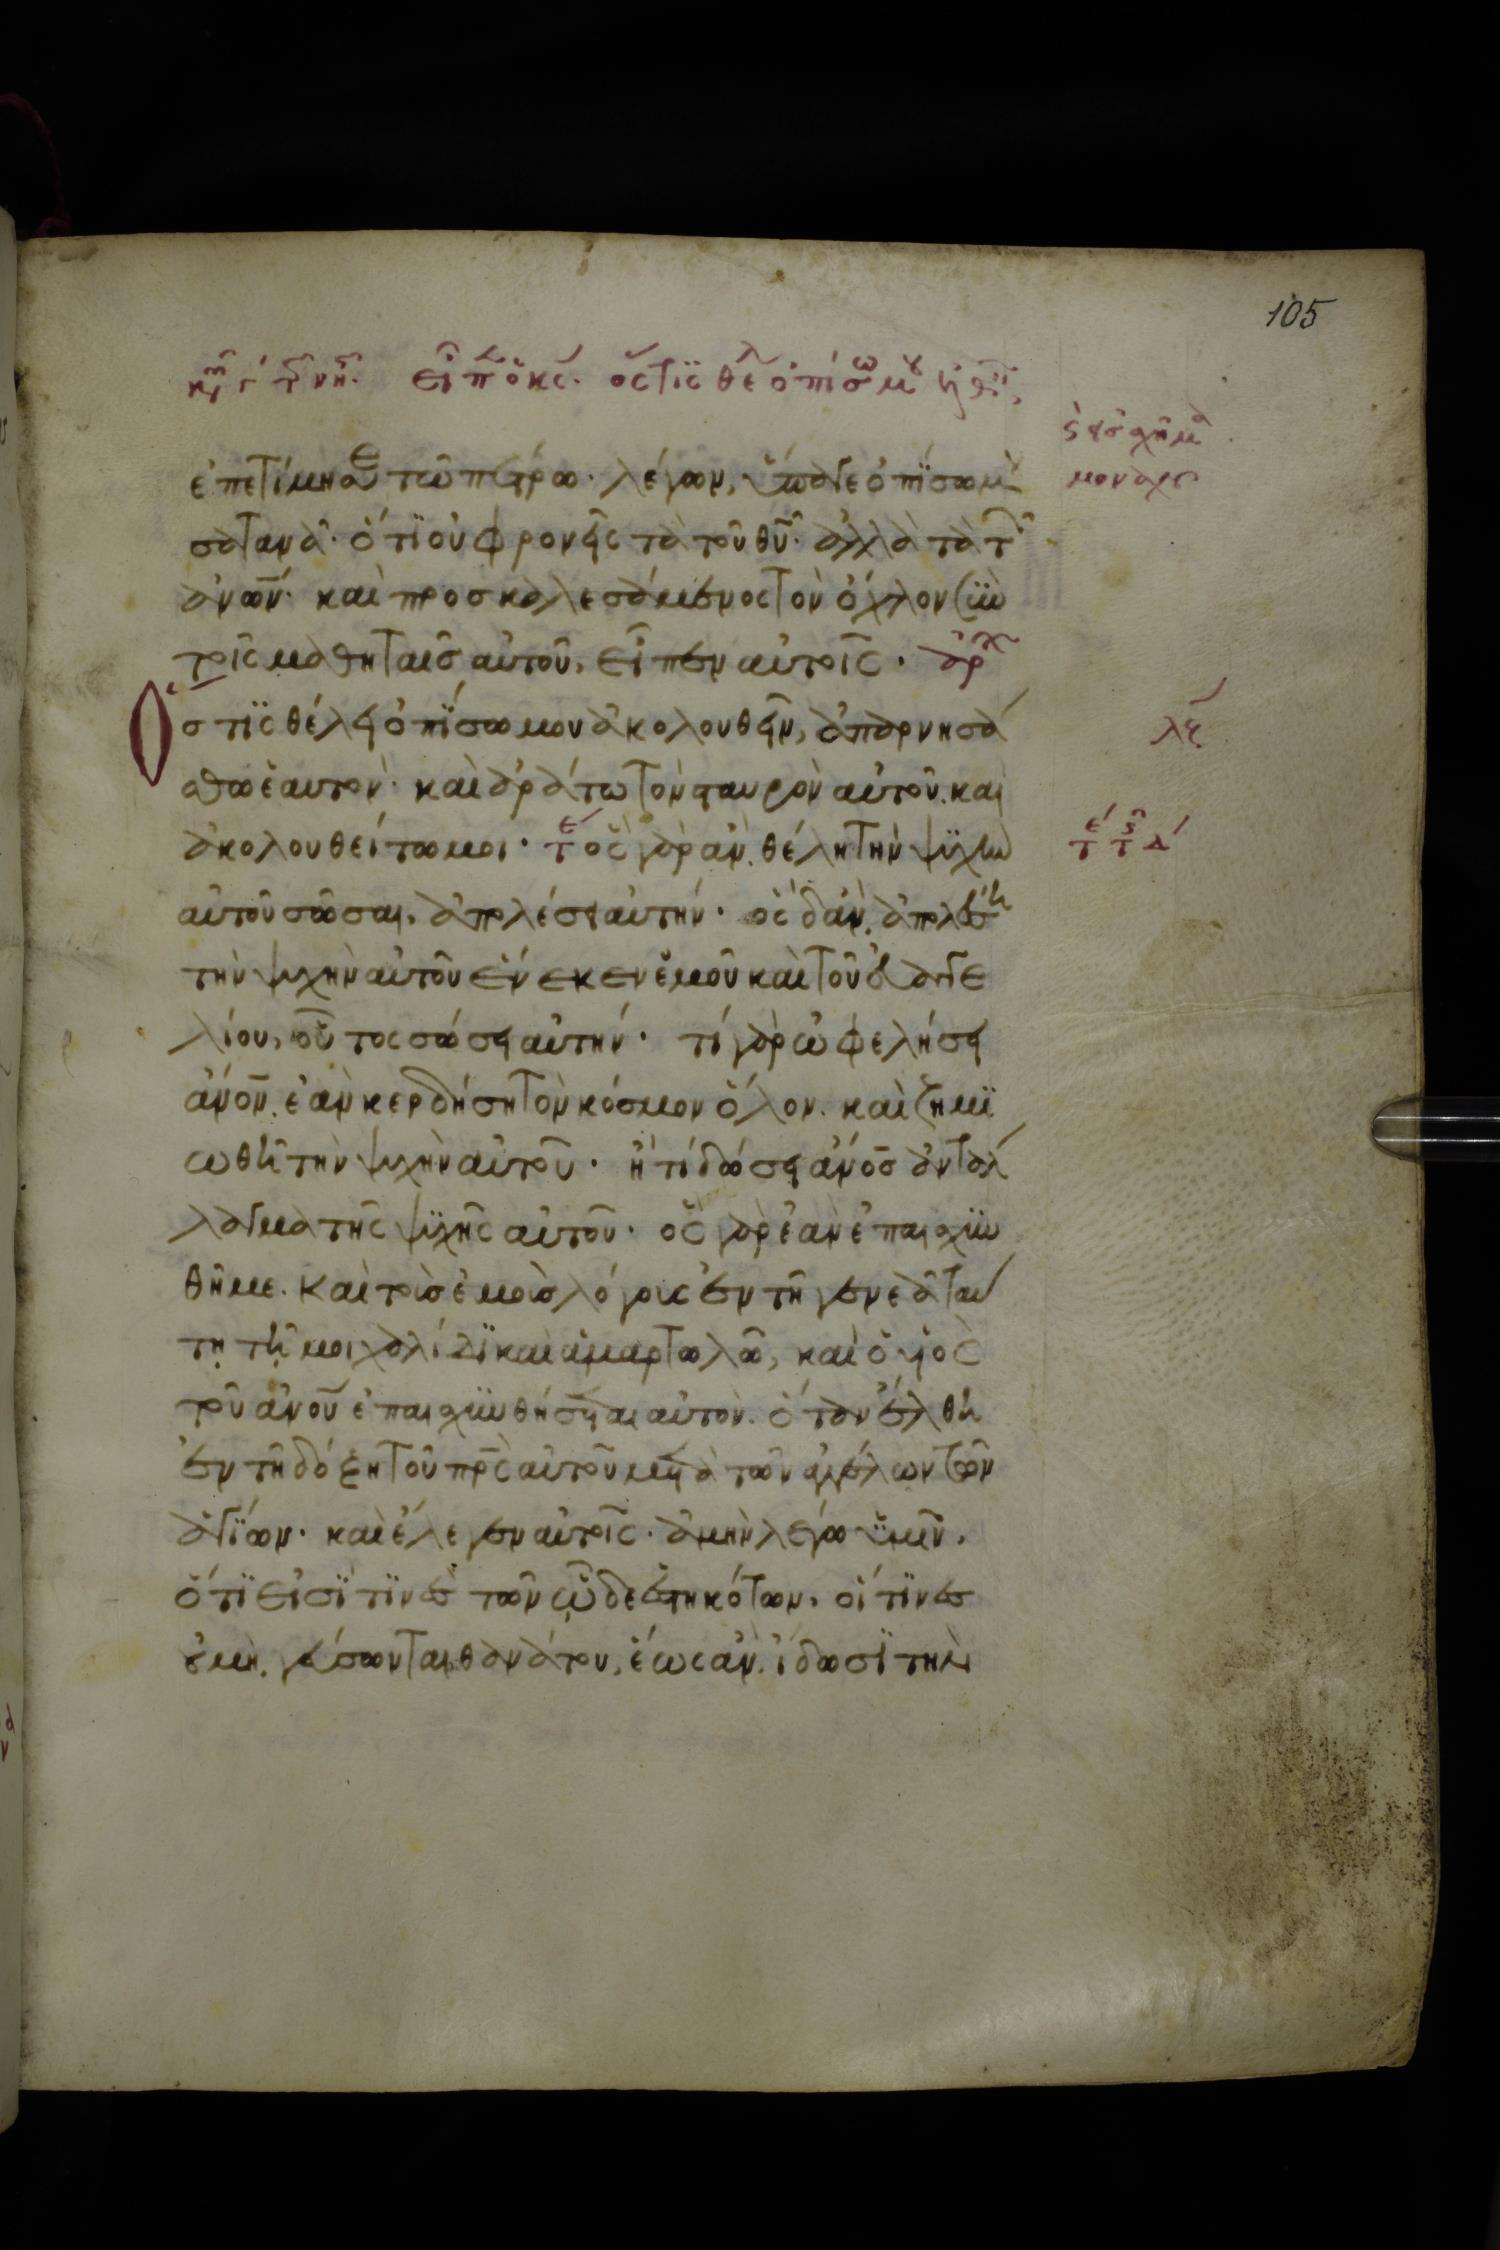 105
εἶπ ὁ κς. ὅστις θέ ὀπίσω μου
σχῆμα
μοναχ
ἐπετίμησε τῶ πέτρω· λέγων, ὕπαγε ὀπίσω μου
σατανᾶ· ὅτι οὐ φρονεῖς τὰ τοῦ θυ· ἀλλὰ τὰ τῶν
ἀνων· καὶ προσκαλεσάμενος τὸν ὄχλον σὺν
τοῖς μαθηταῖς αὐτοῦ, εἶπεν αὐτοῖς· ἀρχ
Ὅστις θέλει ὀπίσω μου ἀκολουθεῖν, ἀπαρνησά
σθω ἑαυτόν· καὶ ἀράτω τὸν σταυρὸν αὐτοῦ. καὶ
ἀκολουθείτω μοι· ὃς γὰρ ἂν θέλη τὴν ψυχὴν
αὐτοῦ σῶσαι, ἀπολέσει αὐτήν· ὃς δ' ἂν ἀπολέση
τὴν ψυχὴν αὐτοῦ ἕνεκεν ἐμοῦ καὶ τοῦ εὐαγγε
λίου, οὗτος σώσει αὐτήν· τί γὰρ ὠφελήσει
ἄνον, ἐὰν κερδήση τὸν κόσμον ὅλον. καὶ ζημι
ωθῆ τὴν ψυχὴν αὐτοῦ· ἢ τί δώσει ἄνος ἀντάλ
λαγμα τῆς ψυχῆς αὐτοῦ· ὃς γὰρ ἐὰν ἐπαισχυν
θῆ με. καὶ τοὺς ἐμοὺς λόγους ἐν τῆ γενεᾶ ταύ
τη τῆ μοιχαλίδι καὶ ἁμαρτωλῶ, καὶ ὁ υἱὸς
τοῦ ἀνου ἐπαισχυνθήσεται αὐτόν. ὅταν ἔλθη
ἐν τῆ δόξη τοῦ πρς αὐτοῦ μετὰ τῶν ἀγγέλων τῶν
ἁγίων· καὶ ἔλεγεν αὐτοῖς· ἀμὴν λέγω ὑμῖν,
ὅτι εἰσί τινες τῶν ὧδε ἑστηκότων, οἵτινες
οὐ μὴ γεύσωνται θανάτου, ἕως ἂν ἴδωσι τὴν